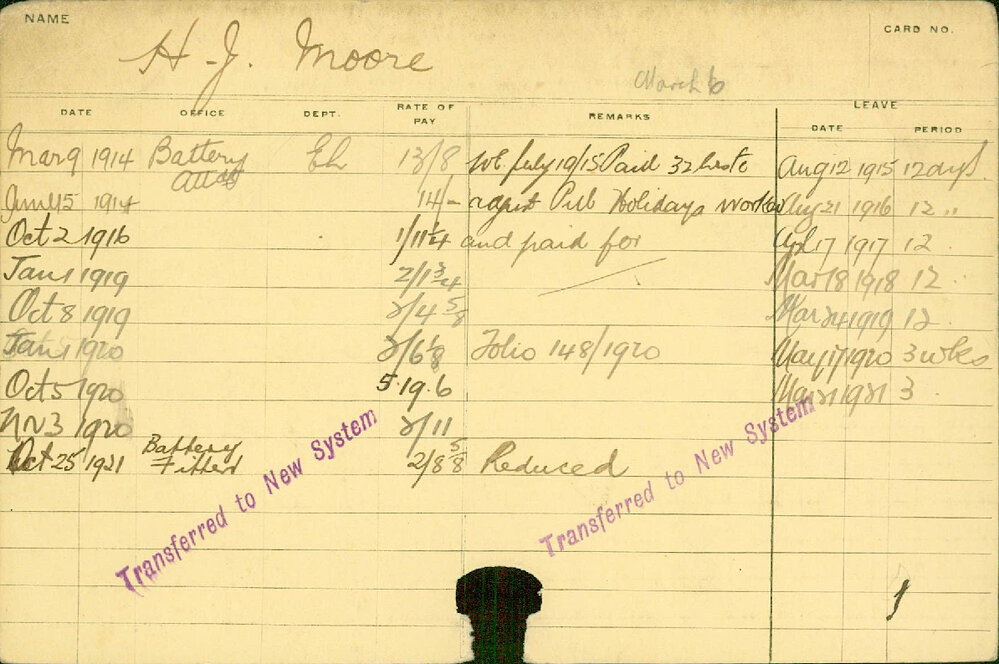 NAME
CARD NO.
H. J. Moore
March 6
DATE OFFICE DEPT. RATE OF PAY REMARKS LEAVE DATE PERIOD
Mar 9 1914 Battery El 13/8 WE July 10/15 Paid 32 Aug 12 1915 12 days
June 15 1914 14/- Pub Holidays worked Aug 21 1916 12 "
Oct 2 1916 1/11¼ and paid for 17 1917 12
Jan 1 1919 2/1¾ Mar 18 1918 12
Oct 8 1919 2/4⅝ Mar 24 1919 12
Jan 1 1920 2/6⅛ Folio 148/1920 May 17 1920 3 wks
Oct 5 1920 5.19.6 1921 3
Nov 3 1920 2/11
Oct 25 1921 Battery Fitter 2/8⅝ Reduced
Transferred to New System
Transferred to New System